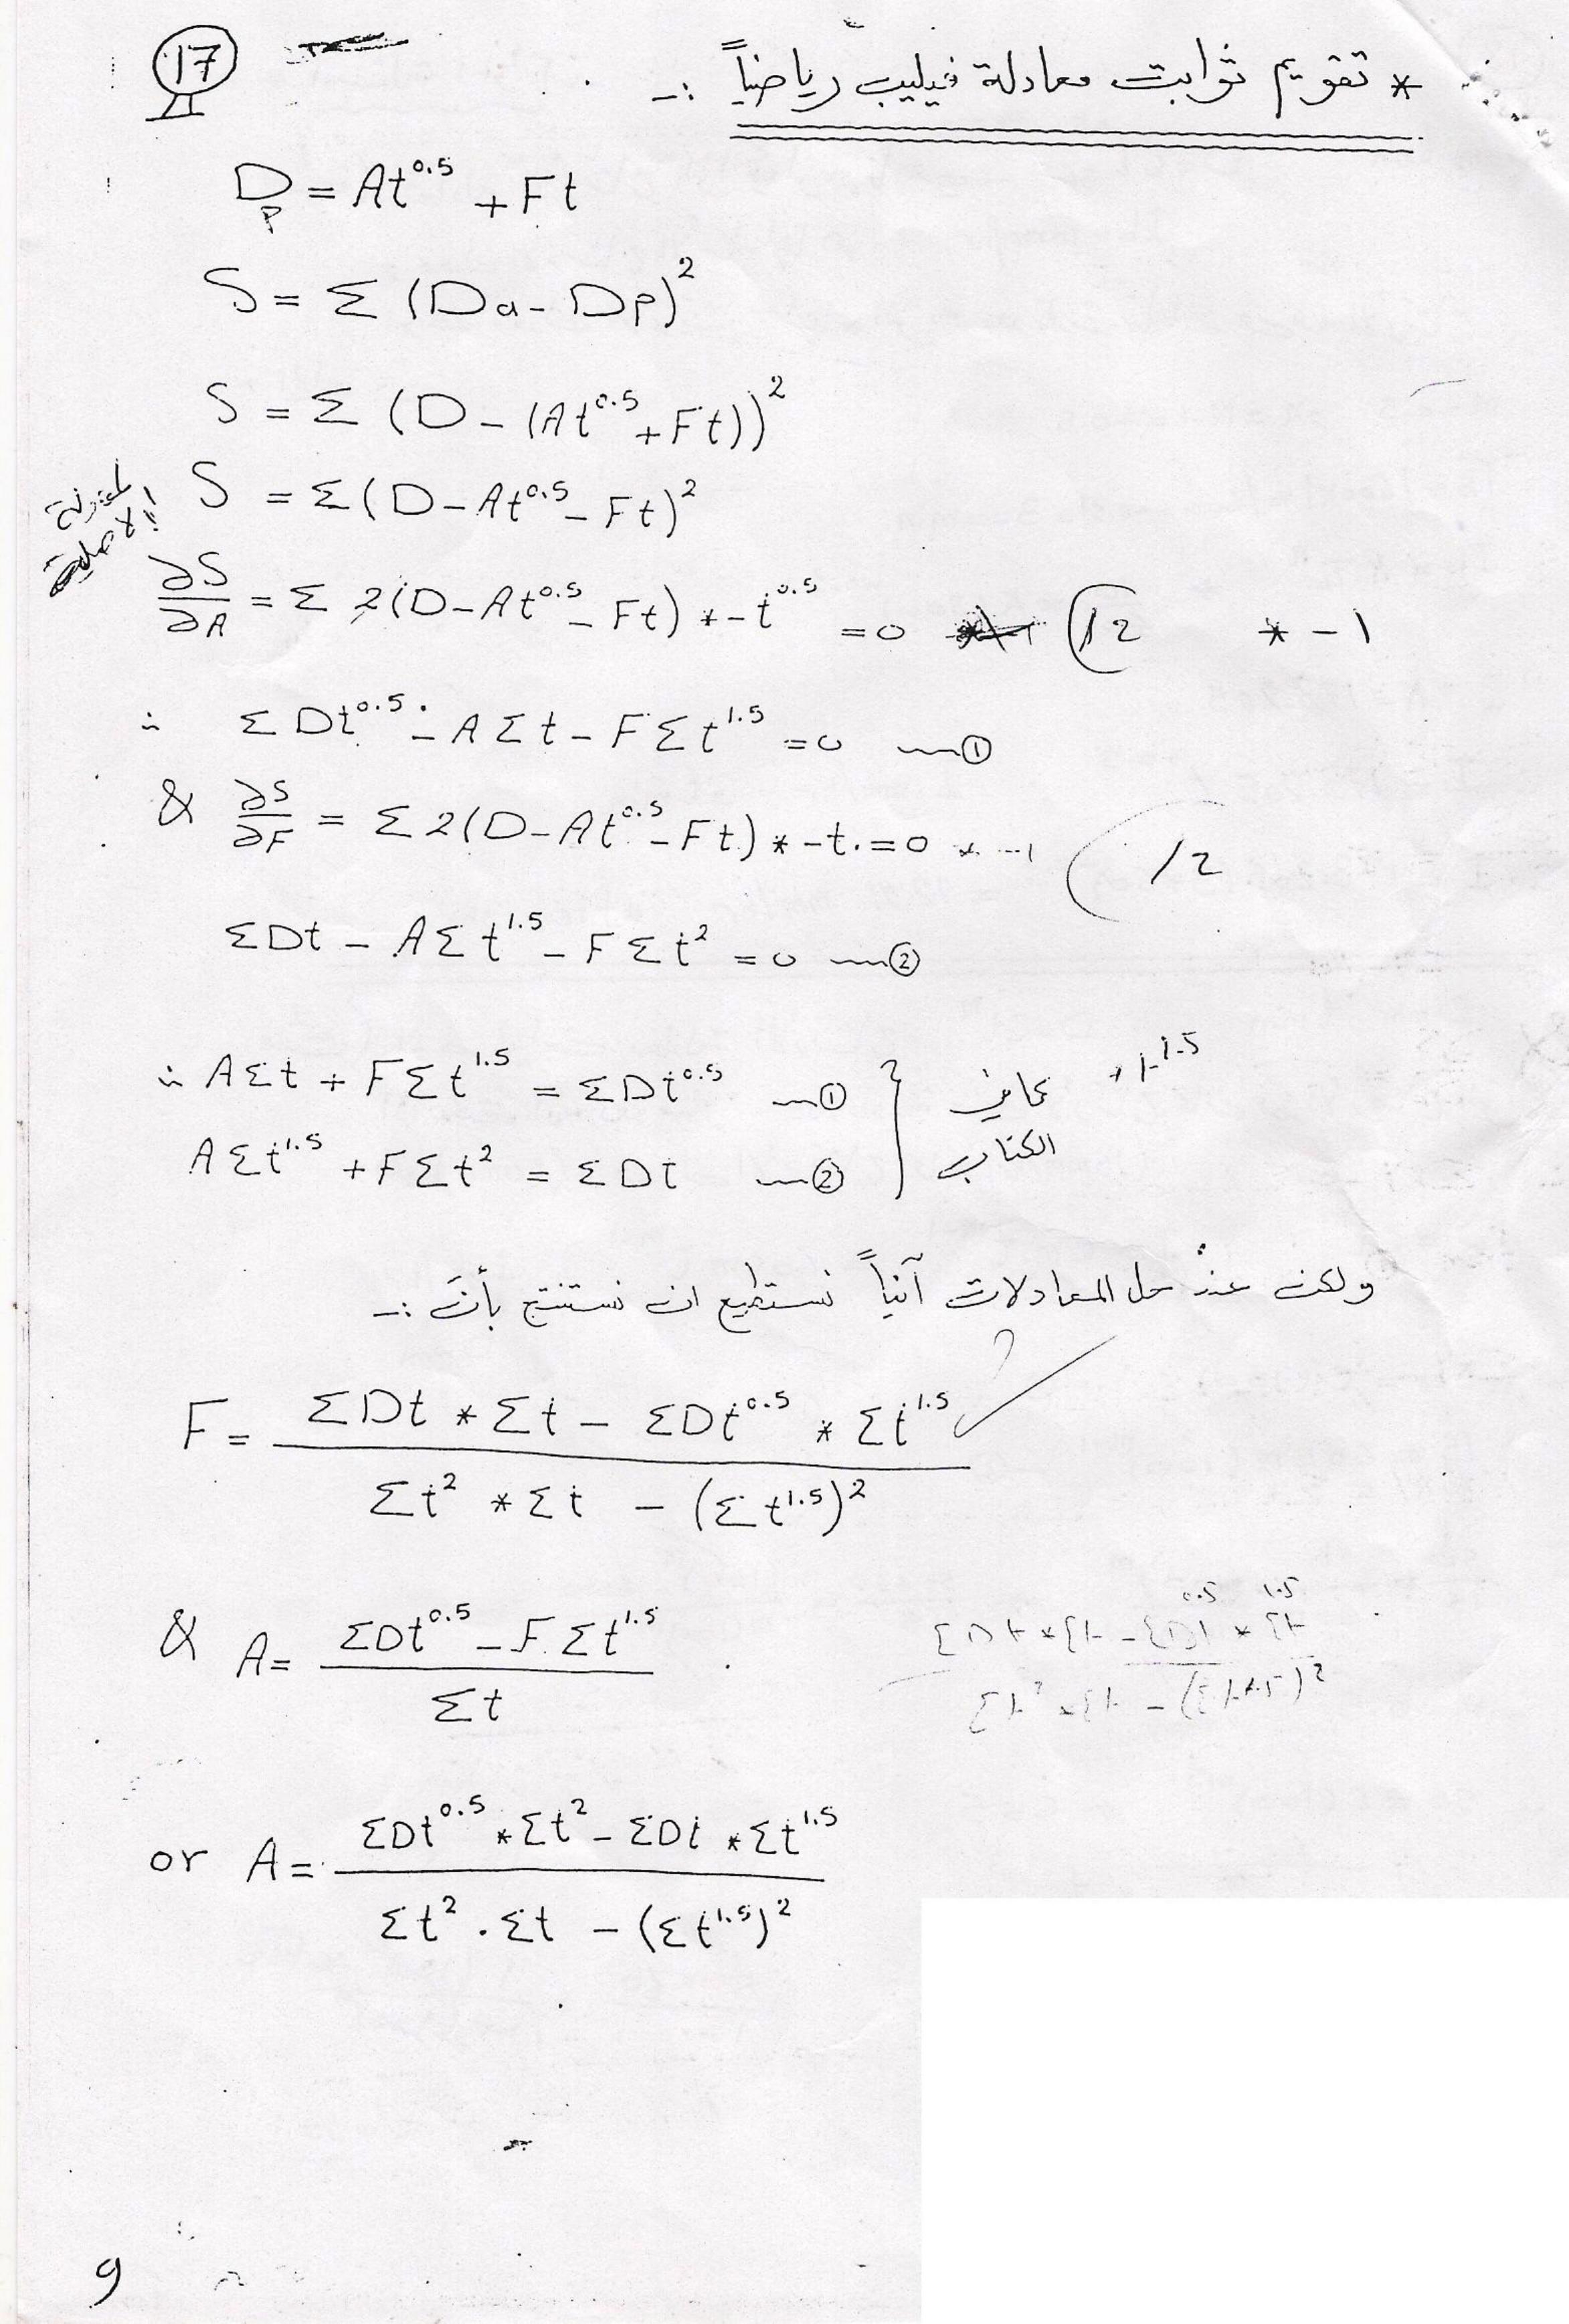 17
* تقويم ثوابت معادلة فيليب رياضياً :-
Dp = At^0.5 + Ft
S = Σ (Da - Dp)^2
S = Σ (D - (At^0.5 + Ft))^2
S = Σ (D - At^0.5 - Ft)^2
∂S/∂A = Σ 2(D - At^0.5 - Ft) * -t^0.5 = 0 /2 * -1
∴ ΣDt^0.5 - AΣt - FΣt^1.5 = 0 ①
& ∂S/∂F = Σ2(D - At^0.5 - Ft) * -t = 0 * -1 /2
ΣDt - AΣt^1.5 - FΣt^2 = 0 ②
∴ AΣt + FΣt^1.5 = ΣDt^0.5 ①
AΣt^1.5 + FΣt^2 = ΣDt ②
كما في
الكتاب
* t^1.5
ولكن عند حل المعادلات آنياً نستطيع ان نستنتج بأن :-
F = (ΣDt * Σt - ΣDt^0.5 * Σt^1.5) / (Σt^2 * Σt - (Σt^1.5)^2)
& A = (ΣDt^0.5 - FΣt^1.5) / Σt
ΣDt * Σt - ΣDt^0.5 * Σt^1.5 / Σt^2 * Σt - (Σt^1.5)^2
or A = (ΣDt^0.5 * Σt^2 - ΣDt * Σt^1.5) / (Σt^2 . Σt - (Σt^1.5)^2)
9